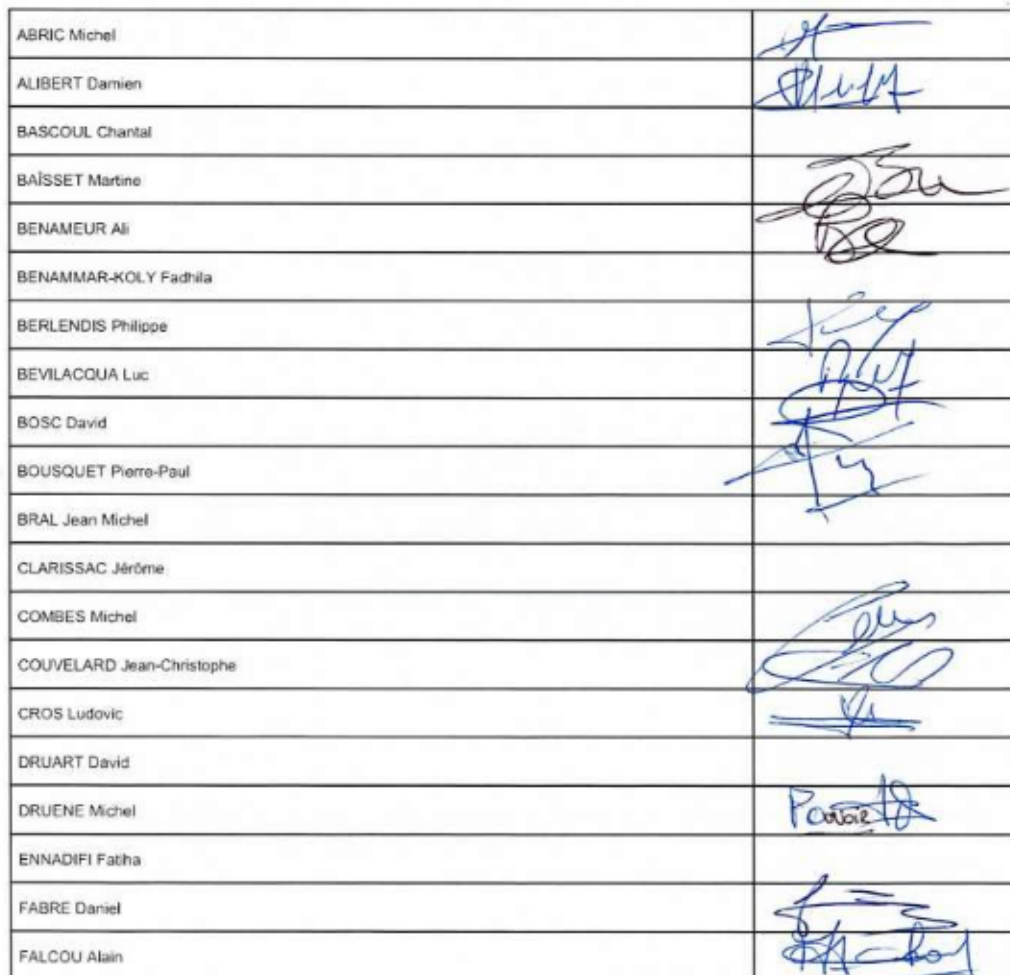 ABRIC Michel
ALIBERT Damien
BASCOUL Chantal
BAÏSSET Martine
BENAMEUR Ali
BENAMMAR-KOLY Fadhila
BERLENDIS Philippe
BEVILACQUA Luc
BOSC David
BOUSQUET Pierre-Paul
BRAL Jean Michel
CLARISSAC Jérôme
COMBES Michel
COUVELARD Jean-Christophe
CROS Ludovic
DRUART David
DRUENE Michel Pouvoir
ENNADIFI Fatiha
FABRE Daniel
FALCOU Alain